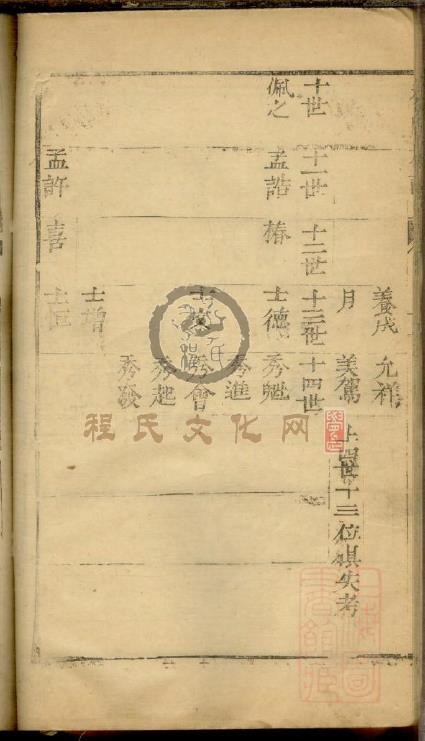 養成 允祥
月 美駕 上四世十三位俱失考
十世 十一世 十二世 十三世 十四世
佩之 孟誥 椿 士德 秀魁
秀進
秀會
秀起
秀發
士增
孟許 喜 士恒
程氏文化网